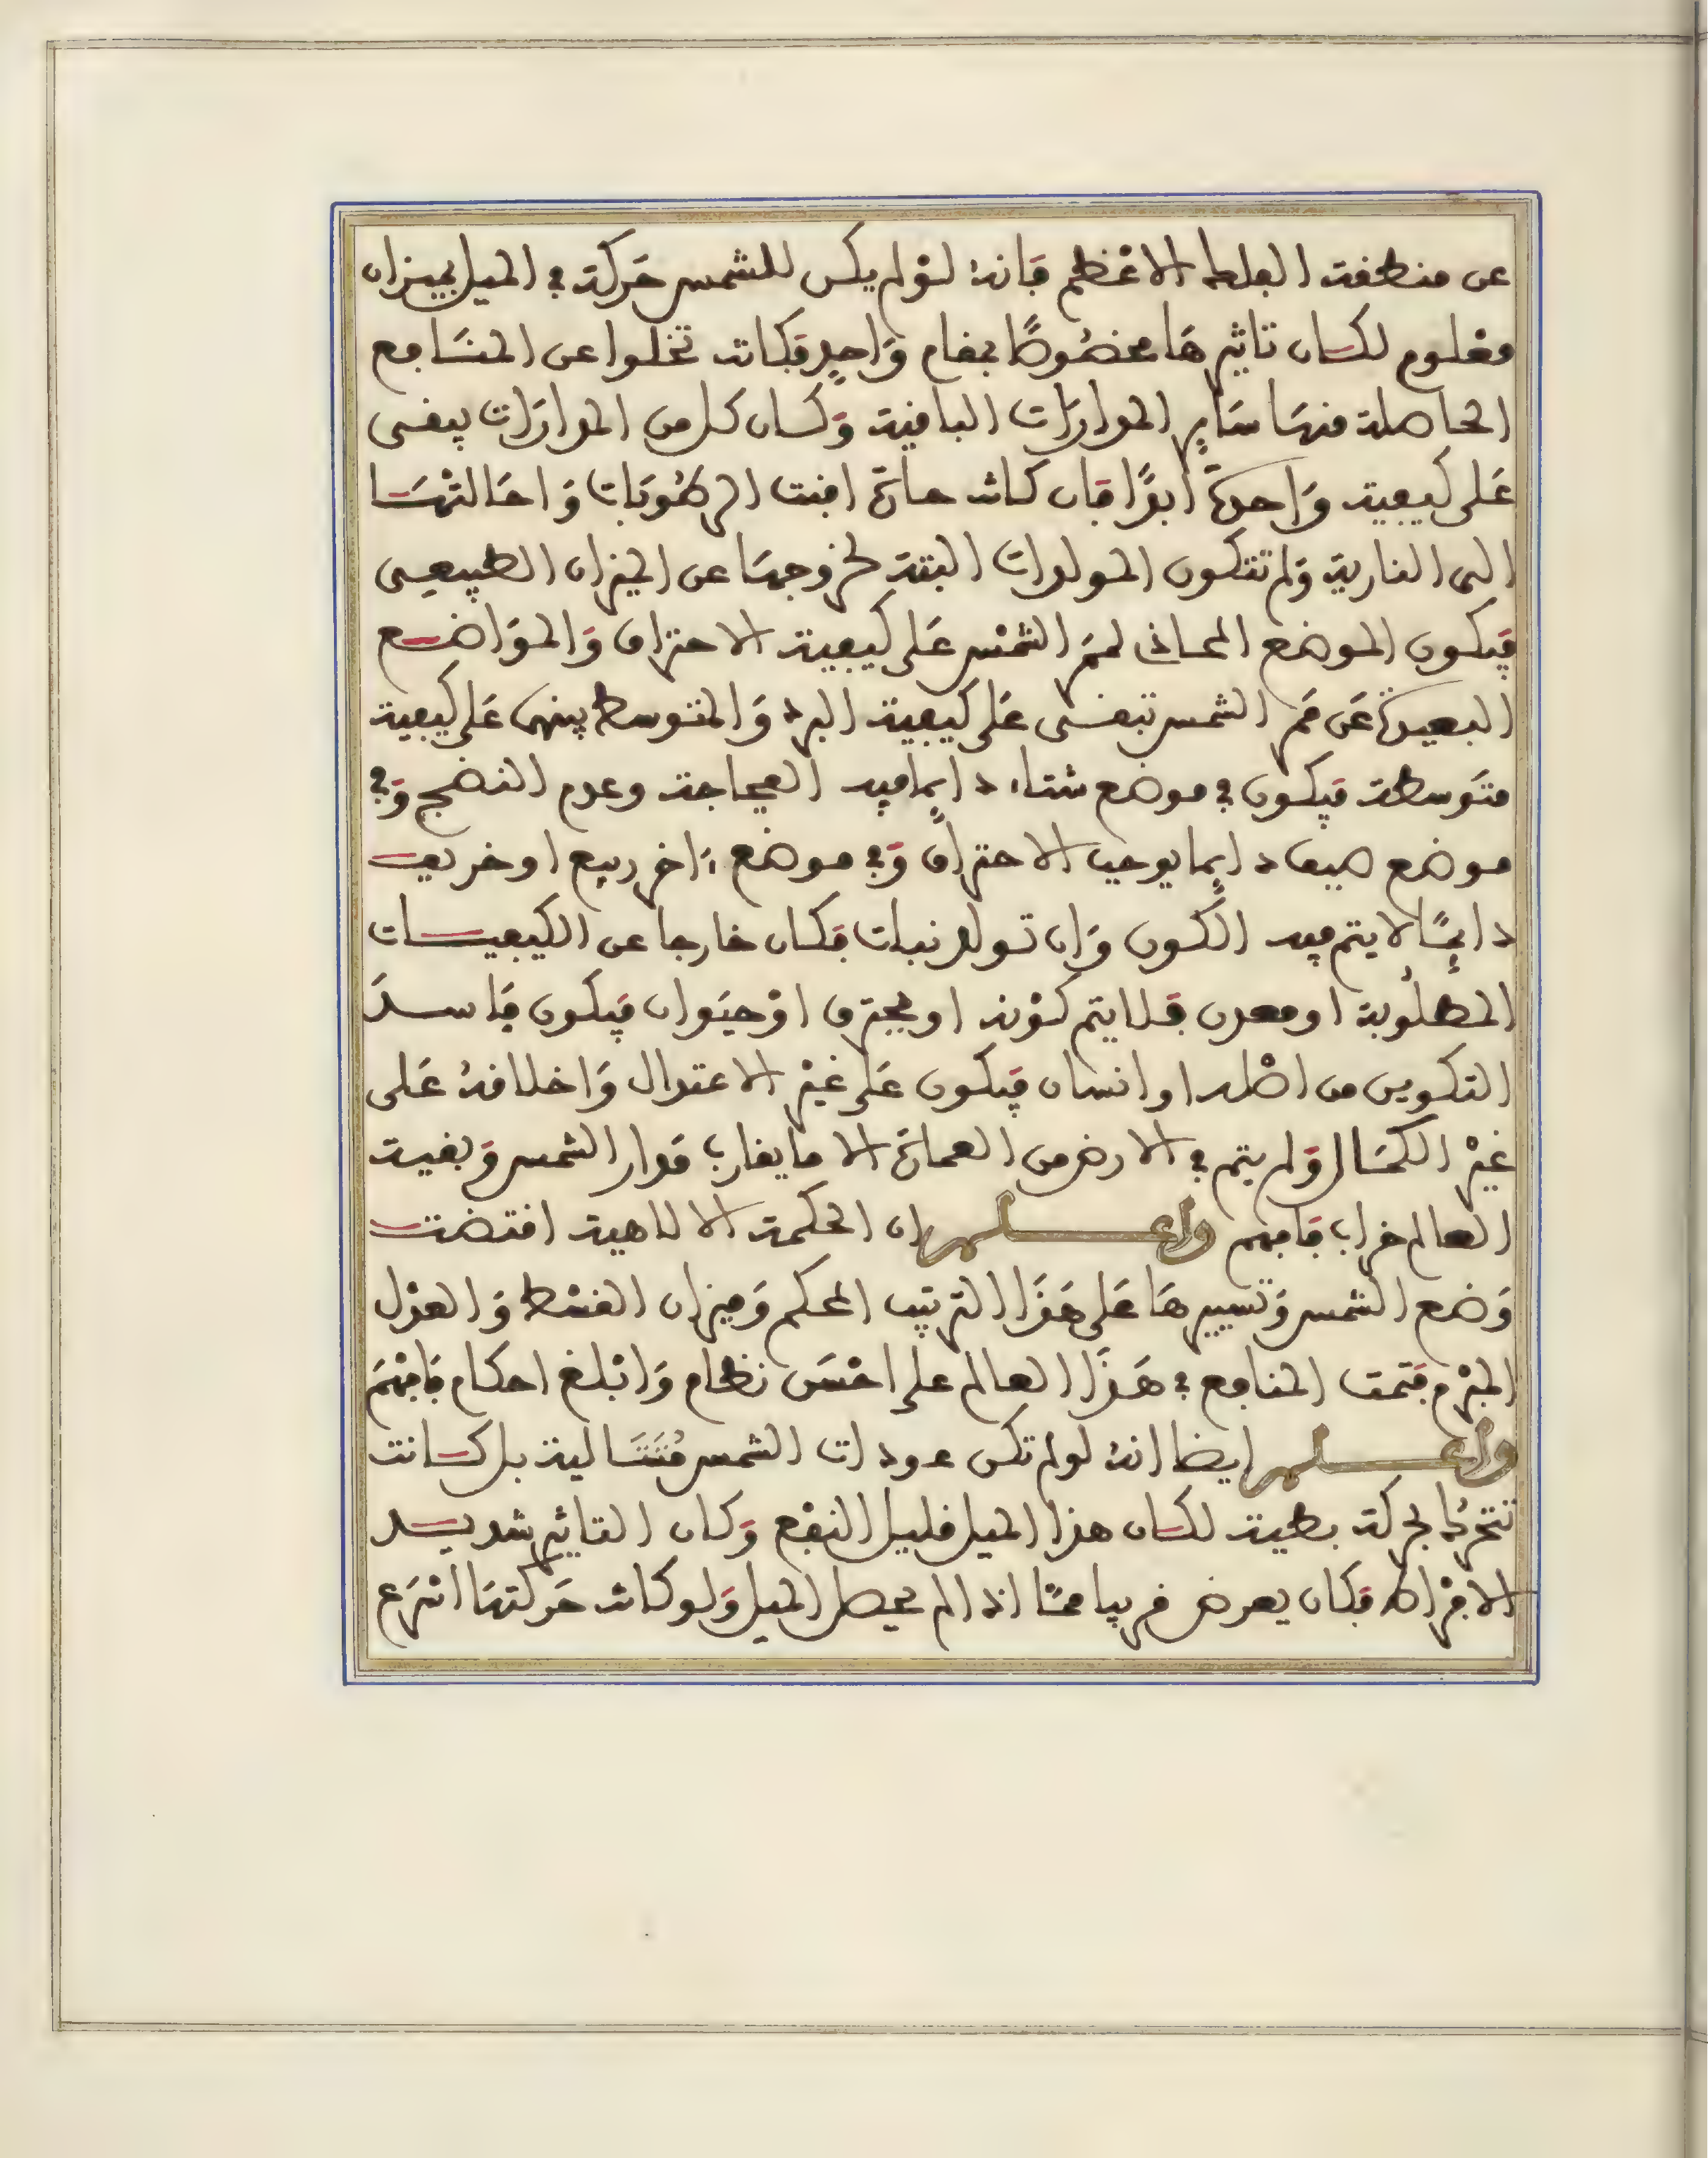 عن منطقة الفلك الاعظم فَانهُ لوْ لم يكن للشمس حَركة في الميل بميزان
معْلوم لكان تاثيرهَا مخصُوصًا بمقام وَاحِدٍ فكانت تخلوا عن المنَافع
الحاصلة منهَا سَايِر المدارَات الباقية وَكان كل من المدارَات يبقى
عَلى كيفية وَاحدَة أبدًا فان كانت حارة افنت الرطُوبَات وَاحَالتْهَا
الى النارية وَلم تتكون المولدات البتة لخروجهَا عن الميزان الطبيعى
فيَكون الموضع المحاذى لممَر الشمْس عَلى كيفية الاحتراق وَالموَاضع
البعيدة عَن ممَر الشمس تبقى عَلى كيفية البرد وَالمتوسط بينهما عَلى كيفية
متَوسطة فيَكون في موضع شتاء دايما فيه العجاجة وعدم النضج وَفي
موضع صيف دايما يوجب الاحتراق وَفي موضع ءَاخر ربيع او خريف
دايمًا لا يتم فيه الكون وَان تولد نبات فكان خارجا عن الكيفيات
المطلُوبة او معدن فلا يتم كوْنه او يحترق اوْ حيَوان فيَكون فَاسدَ
التكوين من اصْله او انسان فيَكون عَلى غيْر الاعتدال وَاخلاقهُ عَلى
غيْر الكمَال وَلم يتم في الارض من العمارة الا ما يقارب مَدار الشمس وَبقية
العالم خراب فَافهم واعلم ان الحكمة الالاهية اقتضت
وَضع الشمس وَتسييرهَا عَلى هَذَا الترتيب المحكم وَميزان القسْط وَالعدْل
المبْرم فتَمت المنافع في هَذَا العالم على احْسَن نظام وَابْلغ احكام فَافهْم
واعلم ايضا انهُ لو لم تكن عودات الشمس مُتَتَالية بل كانت
تتحرك بحركة بطية لكان هذا الميل قليل النفْع وَكان التاثير شديد
الافْراط فكان يعرض قريبا ممَّا اذا لم يحصل الميل وَلو كانت حَركتهَا اسْرَع